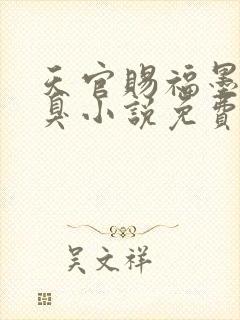 天官赐福墨
臭小説免費
吴文祥